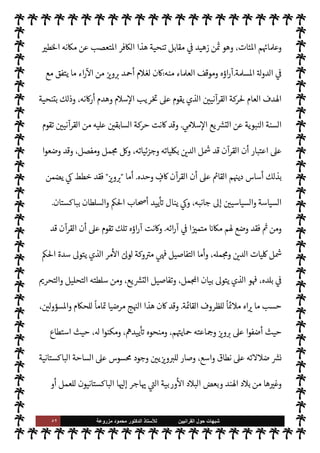 وعلمائهم المئات، وهو ثمن زهيد في مقابل تنحية هذا الكافر المتعصب عن مكانه الخطير
في الدولة المسلمة.آراؤه وموقف العلماء منه:كان لغلام أحمد برويز من الآراء ما يتفق مع
الهدف العام لحركة القرآنيين الذي يقوم على تخريب الإسلام وهدم أركانه، وذلك بتنحية
السنة النبوية عن التشريع الإسلامي. وقد كانت حركة السابقين عليه من القرآنيين تقوم
على اعتبار أن القرآن قد شمل الدين بكلياته وجزئياته، وكل مجمل ومفصل، وقد وضعوا
بذلك أساس دينهم القائم على أن القرآن كافٍ وحده. أما "برويز" فقد خطط كي يضمن
السياسة والسياسيين إلى جانبه، وكي ينال تأييد أصحاب الحكم والسلطان بباكستان.
ومن ثم فقد وضع لهم مكانا متميزا في آرائه. وكانت آراؤه تلك تقوم على أن القرآن قد
شمل كليات الدين ومجمله، وأما التفاصيل فهي متروكة لولي الأمر الذي يتولى سدة الحكم
في بلده، فهو الذي يتولى بيان المجمل، وتفاصيل التشريع، ومن سلطته التحليل والتحريم
حسب ما يراه ملائماً للظروف القائمة. وقد كان هذا النهج مرضيا تماماً للحكام والمسؤولين،
حيث أضفوا على برويز وجماعته حمايتهم، ومنحوه تأييدهم، ومكنوا له، حيث استطاع
نشر ضلالاته على نطاق واسع، وصار للبرويزيين وجود محسوس على الساحة الباكستانية
وغيرها من بلاد الهند وبعض البلاد الأوربية التي يهاجر إليها الباكستانيون للعمل أو
شبهات حول القرآنيين للأستاذ الدكتور محمود مزروعة ٥٢